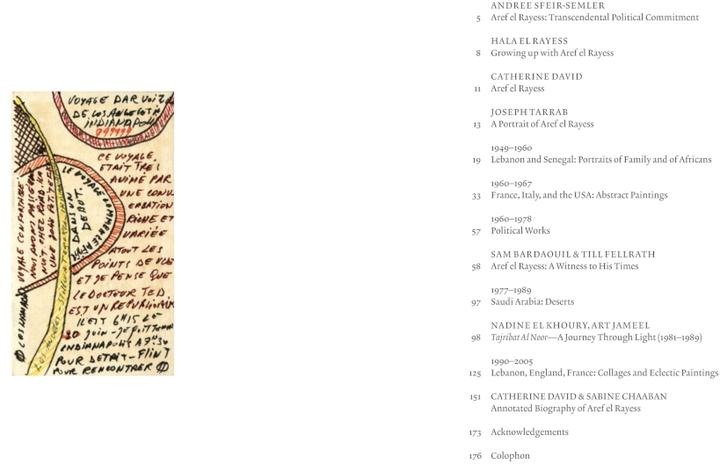 VOYAGE DAR VOIZ
DE LOS ANGELES A
INDIANAPOLIS
CE VOYAGE
ETAIT TRES
ANIMÉ PAR
UNE CONV
ERSATION
RICHE ET
VARIÉE
ATOUT LES
POINTS DE VUE
ET JE PENSE QUE
LE DOCTEUR TED
EST UN REPUBLICAIN
IL EST 6H15 LE
30 JUIN - JE
INDIANAPOLIS A
POUR DETAIT - FLINT
POUR RENCONTRER
LE VOYAGE COMMENCE
DANS UN
DEBUT.
VOYAGE CONFORTABLE
LOS ANGELES -
ANDREE SFEIR-SEMLER
5 Aref el Rayess: Transcendental Political Commitment
HALA EL RAYESS
8 Growing up with Aref el Rayess
CATHERINE DAVID
11 Aref el Rayess
JOSEPH TARRAB
13 A Portrait of Aref el Rayess
1949–1960
19 Lebanon and Senegal: Portraits of Family and of Africans
1960–1967
33 France, Italy, and the USA: Abstract Paintings
1960–1978
57 Political Works
SAM BARDAOUIL & TILL FELLRATH
58 Aref el Rayess: A Witness to His Times
1977–1989
97 Saudi Arabia: Deserts
NADINE EL KHOURY, ART JAMEEL
98 Tajribat Al Noor—A Journey Through Light (1981–1989)
1990–2005
125 Lebanon, England, France: Collages and Eclectic Paintings
151 CATHERINE DAVID & SABINE CHAABAN
Annotated Biography of Aref el Rayess
173 Acknowledgements
176 Colophon